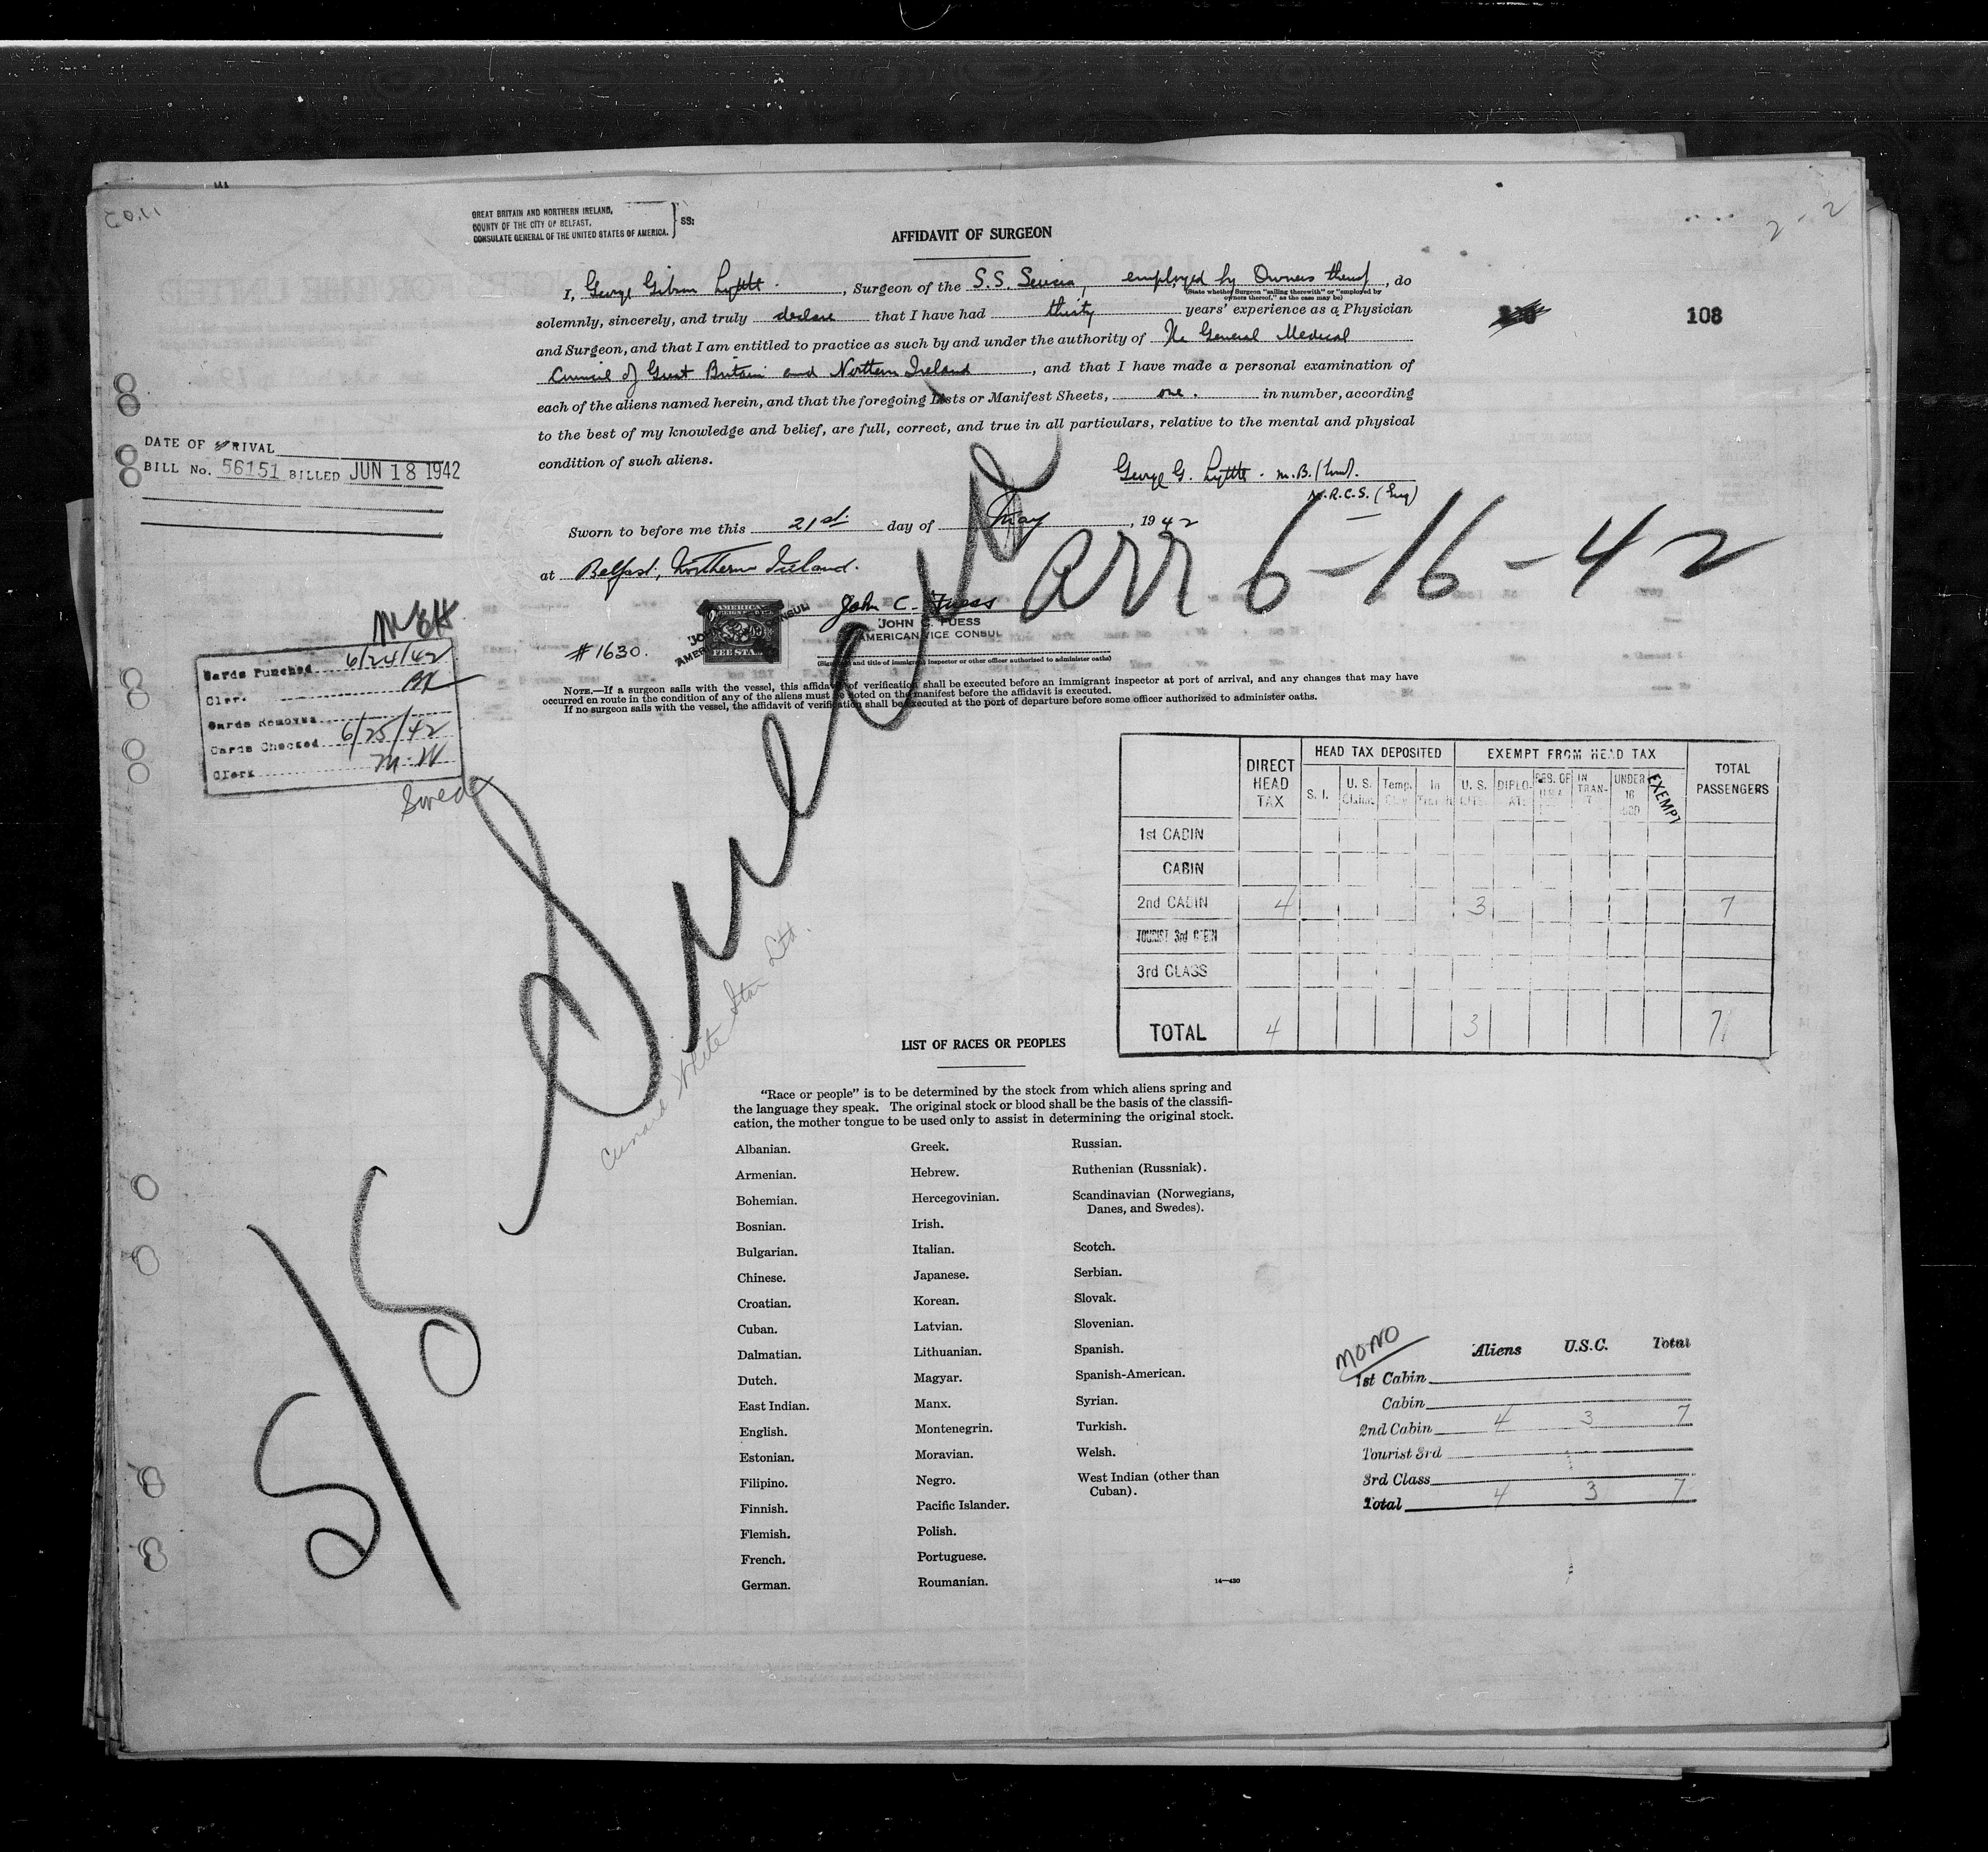 2-2
GREAT BRITAIN AND NORTHERN IRELAND,
COUNTY OF THE CITY OF BELFAST,
CONSULATE GENERAL OF THE UNITED STATES OF AMERICA. } SS:
AFFIDAVIT OF SURGEON
I, George Gibson Lyttle, Surgeon of the S.S. employed by Owners thereof, do
(State whether Surgeon "sailing therewith" or "employed by
owners thereof," as the case may be)
solemnly, sincerely, and truly declare that I have had thirty years' experience as a Physician
108
and Surgeon, and that I am entitled to practice as such by and under the authority of The General Medical
Council of Great Britain and Northern Ireland, and that I have made a personal examination of
each of the aliens named herein, and that the foregoing Lists or Manifest Sheets, one. in number, according
to the best of my knowledge and belief, are full, correct, and true in all particulars, relative to the mental and physical
condition of such aliens.
George G. Lyttle. M.B. (Lond).
M.R.C.S. (Eng)
DATE OF ARRIVAL
BILL No. 56151 BILLED JUN 18 1942
Sworn to before me this 21st day of May, 1942
at Belfast, Northern Ireland.
arr 6-16-42
John C. Fuess
JOHN C. FUESS
AMERICAN VICE CONSUL
#1630.
AMERICAN
FEE STAMP
(Signature and title of immigrant inspector or other officer authorized to administer oaths)
NOTE.—If a surgeon sails with the vessel, this affidavit of verification shall be executed before an immigrant inspector at port of arrival, and any changes that may have
occurred en route in the condition of any of the aliens must be noted on the manifest before the affidavit is executed.
If no surgeon sails with the vessel, the affidavit of verification shall be executed at the port of departure before some officer authorized to administer oaths.
Cards Punched 6/24/42
Clerk
Cards Removed
Cards Checked 6/25/42
Clerk M.W
Swed
S/S
Cunard White Star Ltd.
DIRECT HEAD TAX
HEAD TAX DEPOSITED
EXEMPT FROM HEAD TAX
TOTAL PASSENGERS
S. I. U. S. Claim. Temp. In U. S. DIPLO- RES. OF IN TRAN- UNDER 16 EXEMPT
1st CABIN
CABIN
2nd CABIN 4 3 7
TOURIST 3rd CABIN
3rd CLASS
TOTAL 4 3 7
LIST OF RACES OR PEOPLES
"Race or people" is to be determined by the stock from which aliens spring and
the language they speak. The original stock or blood shall be the basis of the classifi-
cation, the mother tongue to be used only to assist in determining the original stock.
Albanian.
Armenian.
Bohemian.
Bosnian.
Bulgarian.
Chinese.
Croatian.
Cuban.
Dalmatian.
Dutch.
East Indian.
English.
Estonian.
Filipino.
Finnish.
Flemish.
French.
German.
Greek.
Hebrew.
Hercegovinian.
Irish.
Italian.
Japanese.
Korean.
Latvian.
Lithuanian.
Magyar.
Manx.
Montenegrin.
Moravian.
Negro.
Pacific Islander.
Polish.
Portuguese.
Roumanian.
Russian.
Ruthenian (Russniak).
Scandinavian (Norwegians,
Danes, and Swedes).
Scotch.
Serbian.
Slovak.
Slovenian.
Spanish.
Spanish-American.
Syrian.
Turkish.
Welsh.
West Indian (other than
Cuban).
14—430
MONO
Aliens U.S.C. Total
1st Cabin
Cabin
2nd Cabin 4 3 7
Tourist 3rd
3rd Class
Total 4 3 7